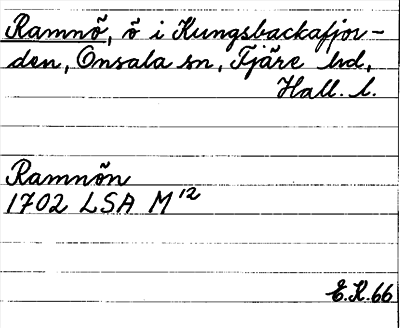 Ramnö, ö i Kungsbackafjor-
den, Onsala sn, Fjäre hd,
Hall. l.
Ramnön
1702 LSA M¹²
E.K.66